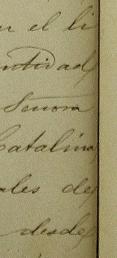 en el li
entidad
Señora
Catalina
ales de
desde